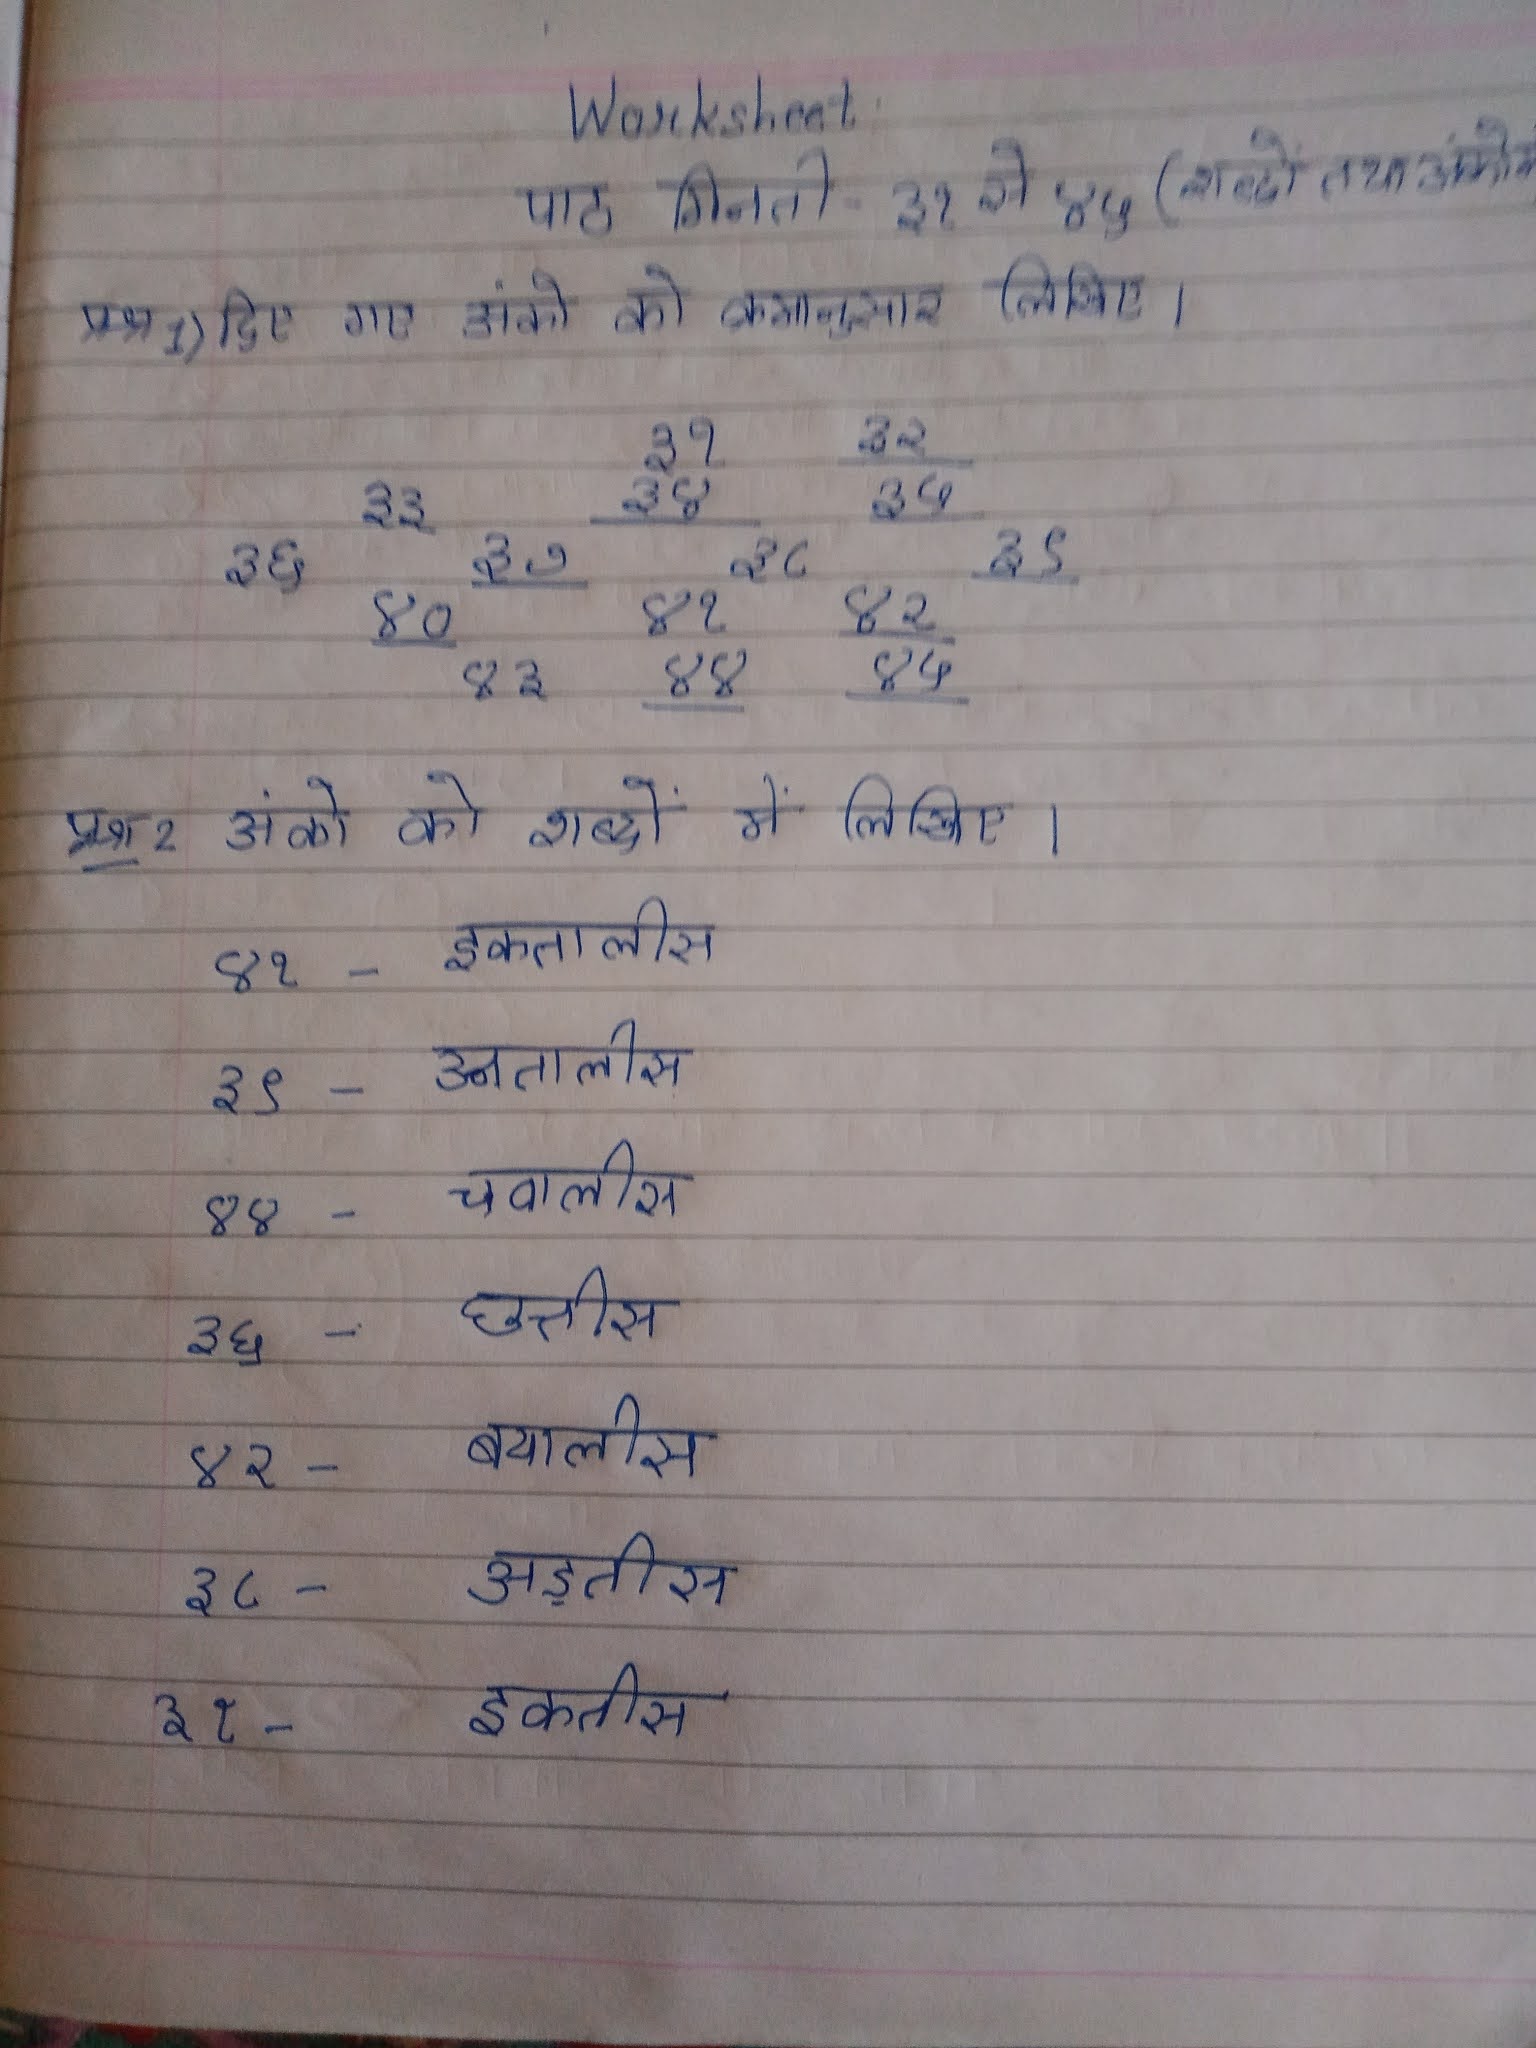 Worksheet
पाठ गिनती - ३१ से ४५ (शब्दों तथा अंको में
प्रश्न 1) दिए गए अंको को क्रमानुसार लिखिए।
३१ ३२
३३ ३४ ३५
३६ ३७ ३८ ३९
४० ४१ ४२
४३ ४४ ४५
प्रश्न 2 अंको को शब्दों में लिखिए।
४१ - इकतालीस
३९ - उनतालीस
४४ - चवालीस
३६ - छत्तीस
४२ - बयालीस
३८ - अड़तीस
३१ - इकतीस